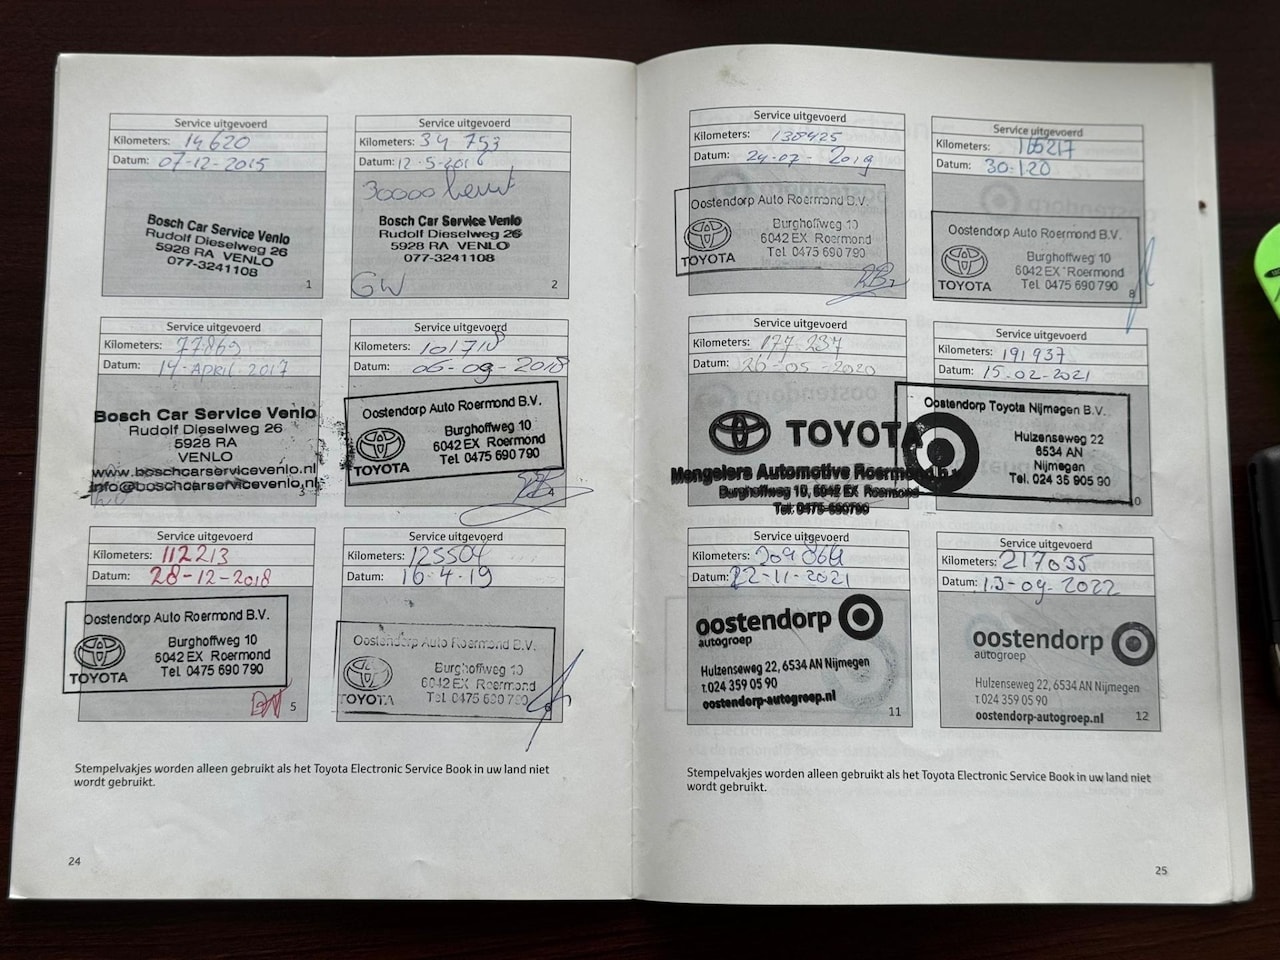 Service uitgevoerd
Kilometers: 14620
Datum: 07-12-2015
Bosch Car Service Venlo
Rudolf Dieselweg 26
5928 RA VENLO
077-3241108
1
Service uitgevoerd
Kilometers: 34 753
Datum: 12-5-2016
30000 beurt
Bosch Car Service Venlo
Rudolf Dieselweg 26
5928 RA VENLO
077-3241108
GW
2
Service uitgevoerd
Kilometers: 77869
Datum: 14-APRIL-2017
Bosch Car Service Venlo
Rudolf Dieselweg 26
5928 RA
VENLO
www.boschcarservicevenlo.nl
info@boschcarservicevenlo.nl
3
Service uitgevoerd
Kilometers: 101718
Datum: 06-09-2018
Oostendorp Auto Roermond B.V.
Burghoffweg 10
6042 EX Roermond
Tel. 0475 690 790
TOYOTA
Service uitgevoerd
Kilometers: 112213
Datum: 28-12-2018
Oostendorp Auto Roermond B.V.
Burghoffweg 10
6042 EX Roermond
Tel. 0475 690 790
TOYOTA
5
Service uitgevoerd
Kilometers: 125504
Datum: 16-4-19
Oostendorp Auto Roermond B.V.
Burghoffweg 10
6042 EX Roermond
Tel. 0475 690 790
TOYOTA
6
Stempelvakjes worden alleen gebruikt als het Toyota Electronic Service Book in uw land niet
wordt gebruikt.
24
Service uitgevoerd
Kilometers: 138425
Datum: 24-07-2019
Oostendorp Auto Roermond B.V.
Burghoffweg 10
6042 EX Roermond
Tel. 0475 690 790
TOYOTA
Service uitgevoerd
Kilometers: 165217
Datum: 30-1-20
Oostendorp Auto Roermond B.V.
Burghoffweg 10
6042 EX Roermond
Tel. 0475 690 790
TOYOTA
8
Service uitgevoerd
Kilometers: 177-237
Datum: 26-05-2020
TOYOTA
Mengelers Automotive Roermond b.v.
Burghoffweg 10, 6042 EX Roermond
Tel: 0475-690790
Service uitgevoerd
Kilometers: 191937
Datum: 15-02-2021
Oostendorp Toyota Nijmegen B.V.
Hulzenseweg 22
6534 AN
Nijmegen
Tel. 024 35 905 90
10
Service uitgevoerd
Kilometers: 209864
Datum: 22-11-2021
oostendorp
autogroep
Hulzenseweg 22, 6534 AN Nijmegen
T. 024 359 05 90
oostendorp-autogroep.nl
11
Service uitgevoerd
Kilometers: 217035
Datum: 13-09-2022
oostendorp
autogroep
Hulzenseweg 22, 6534 AN Nijmegen
T. 024 359 05 90
oostendorp-autogroep.nl
12
Stempelvakjes worden alleen gebruikt als het Toyota Electronic Service Book in uw land niet
wordt gebruikt.
25